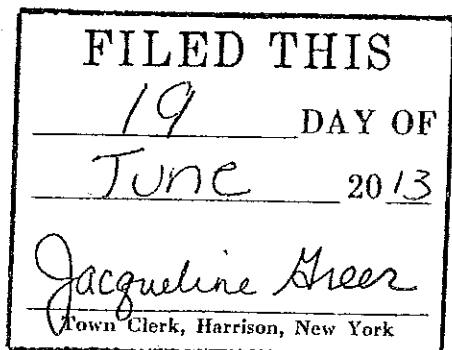 FILED THIS
19 DAY OF
June 2013
Jacqueline Greer
Town Clerk, Harrison, New York